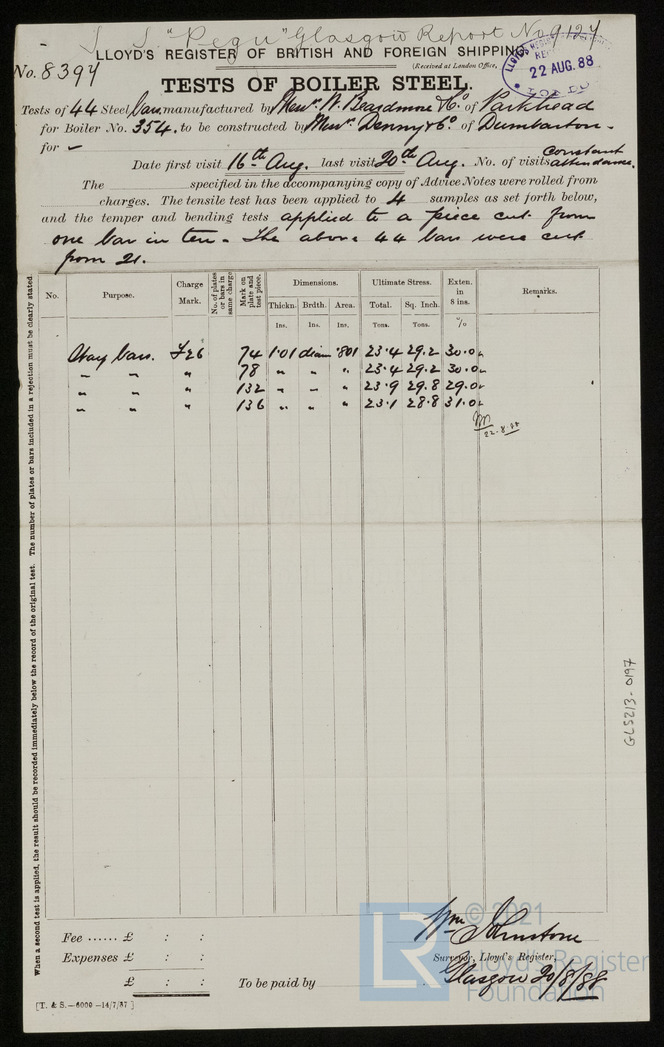 S. S. "Pegu" Glasgow Report No 9127
LLOYD'S REGISTER OF BRITISH AND FOREIGN SHIPPING.
No. 8397
(Received at London Office,
22 AUG. 88
TESTS OF BOILER STEEL.
Tests of 44 Steel bars manufactured by Messrs. W. Beardmore & Co. of Parkhead
for Boiler No. 354, to be constructed by Messrs. Denny & Co. of Dumbarton.
for –
Date first visit 16th Aug. last visit 20th Aug. No. of visits constant attendance.
The specified in the accompanying copy of Advice Notes were rolled from
charges. The tensile test has been applied to 4 samples as set forth below,
and the temper and bending tests applied to a piece cut from
one bar in ten. The above 44 bars were cut
from 21.
No. Purpose. Charge Mark. No. of plates or bars in same charge Mark on plate and test piece. Dimensions. Ultimate Stress. Exten. in 8 ins. Remarks.
Thickn. Brdth. Area. Total. Sq. Inch.
Ins. Ins. Ins. Tons. Tons. %
Stay bars. F26 74 1.01 diam .801 23.4 29.2 30.0
" " " 78 " " " 23.4 29.2 30.0
" " " 132 " " " 23.9 29.8 29.0
" " " 136 " " " 23.1 28.8 31.0
22.8.88
When a second test is applied, the result should be recorded immediately below the record of the original test. The number of plates or bars included in a rejection must be clearly stated.
GLS213-0197
Fee ...... £ : :
Expenses £ : :
£ : :
To be paid by
Wm Johnstone
Surveyor, Lloyd's Register,
Glasgow 20/8/88
[T. & S.—6000—14/7/87]
LR
© 2021
Lloyd's Register
Foundation